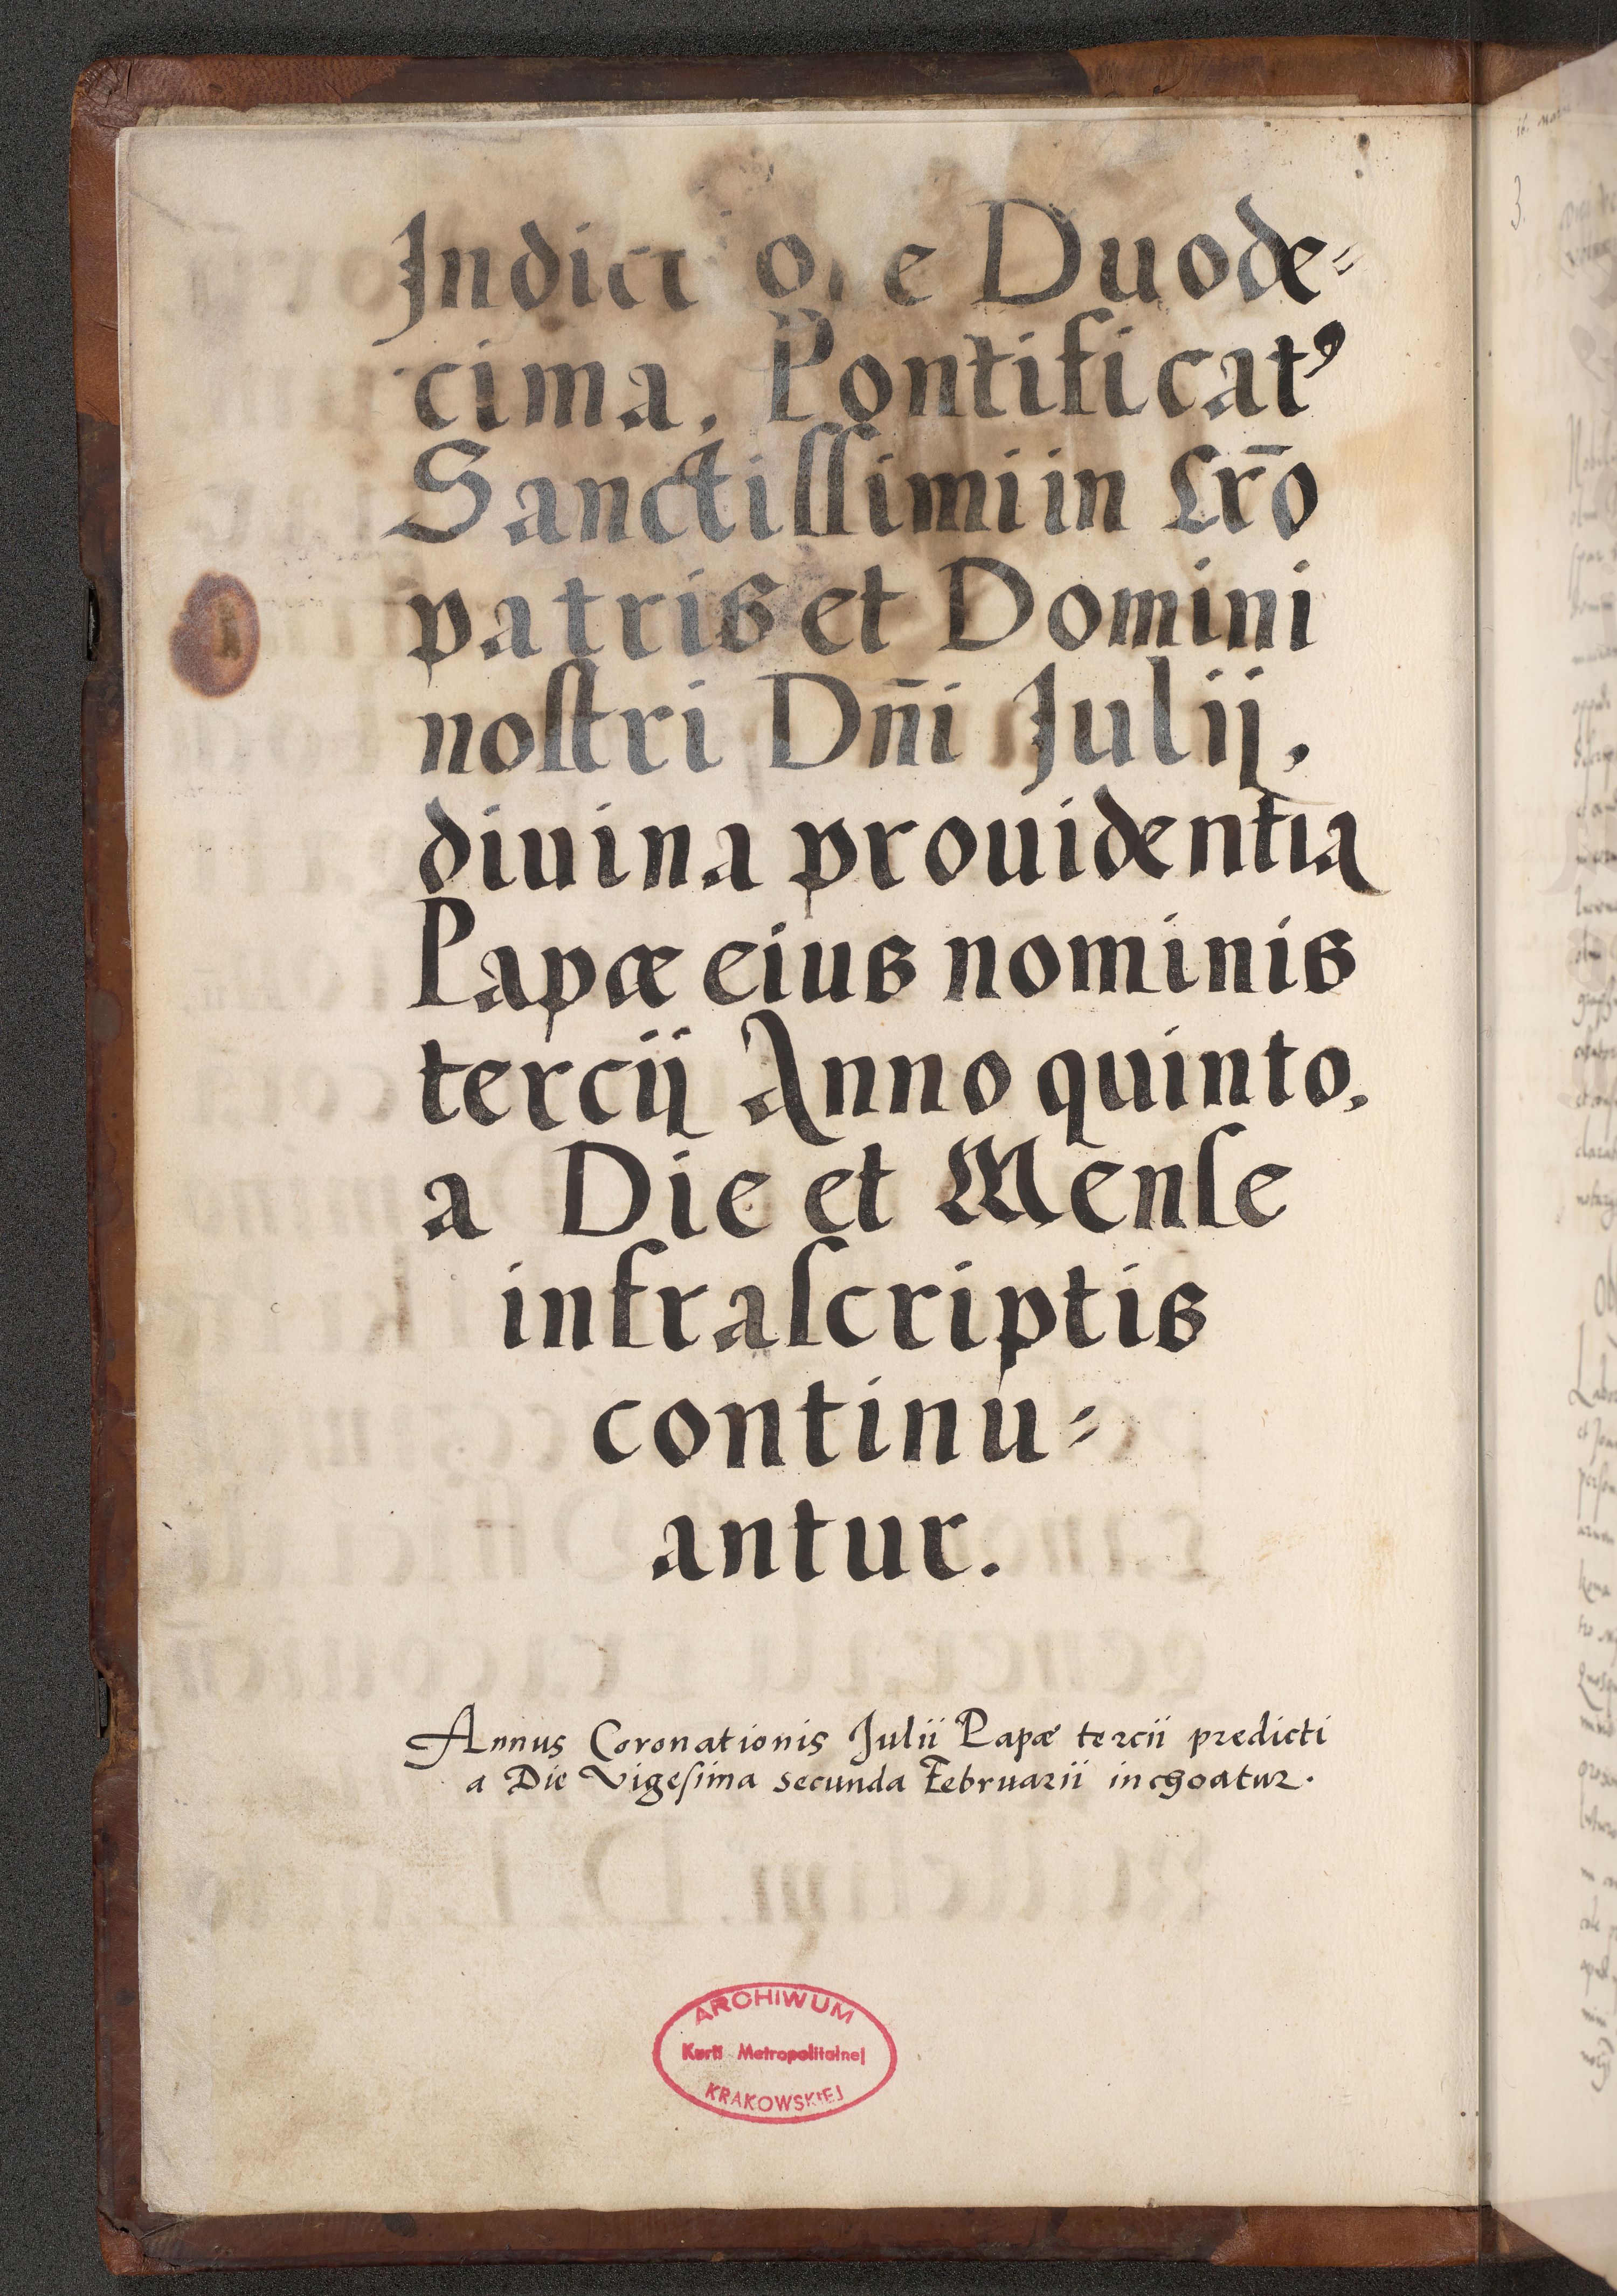 Indictione Duode=
cima. Pontificatꝰ
Sanctissimi in Xr̄o
patris et Domini
nostri Dn̄i Julij,
diuina prouidentia
Papæ eius nominis
tercij Anno quinto,
a Die et Mense
infrascriptis
continu=
antur.
Annus Coronationis Julii Papæ tercii predicti
a Die Vigesima secunda Februarii inchoatur.
ARCHIWUM
Kurii Metropolitalnej
KRAKOWSKIEJ
3.